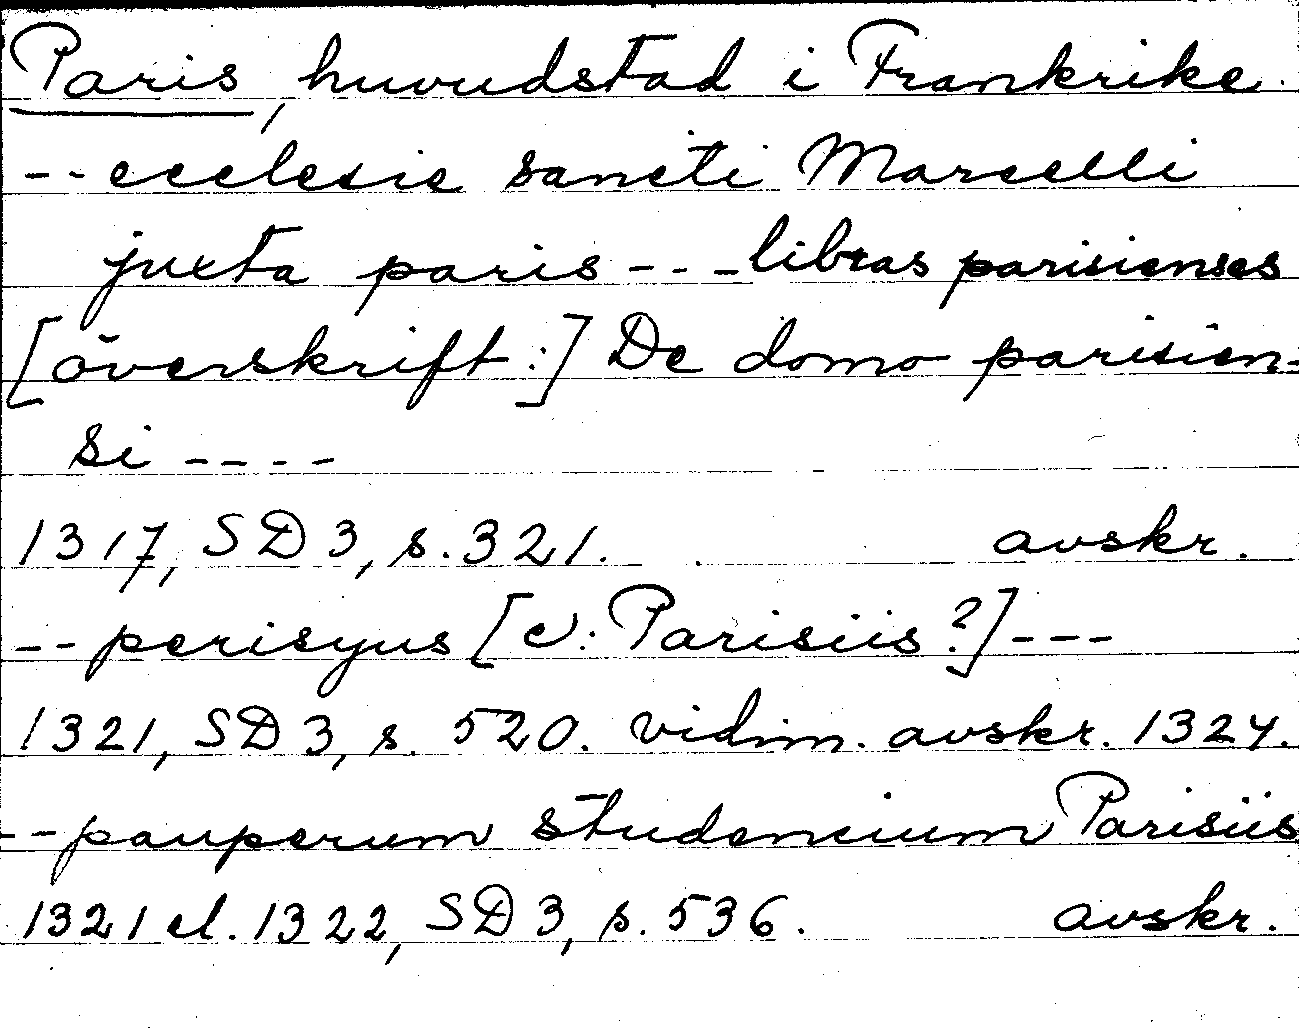 Paris, huvudstad i Frankrike.
-- ecclesie sancti Marcelli
juxta paris --- libras parisienses
[överskrift:] De domo parisien-
si ----
1317, SD 3, s. 321. avskr.
-- perisyus [ɔ: Parisiis?] ---
1321, SD 3, s. 520. vidim. avskr. 1324.
-- pauperum studencium Parisiis
1321 el. 1322, SD 3, s. 536. avskr.